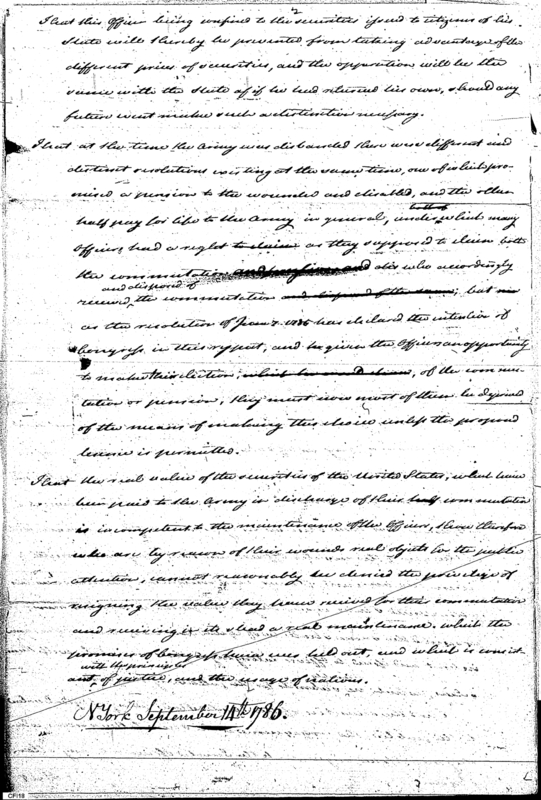 2
That this Officer being confined to the securities issued to citizens of his
State will thereby be prevented from taking advantage of the
different prices of securities, and the opperation will be the
same with the State as if he had returned his own, should any
future event make such a distinction necessary.
That at the time the Army was disbanded there were different and
distinct resolutions existing at the same time, one of which pro-
mised a pension to the wounded and disabled, and the other
half pay for life to the Army in general, under which many
Officers had a right to claim as they supposed to claim both
the commutation and who accordingly
and disposed of
received the commutation and disposed of the same; but
as the resolution of June 7. 1785 has declared the intention of
Congress in this respect, and given the Officers an opportunity
to make this election, of the commu-
tation or pension, they must now most of them be deprived
of the means of making this choice unless the proposed
license is permitted.
That the real value of the securities of the United States, which have
been paid to the Army in discharge of their half commutation
is incompetent to the maintenance of the Officers, those therefore
who are by reason of their wounds real objects for the public
attention, cannot reasonably be denied the priviledge of
resigning the value they have received for their commutation
and receiving in its stead a real maintenance, which the
promises of Congress have ever held out, and which is consist
with the principles
ant of justice, and the usage of nations.
N York September 14th 1786.
CF/18